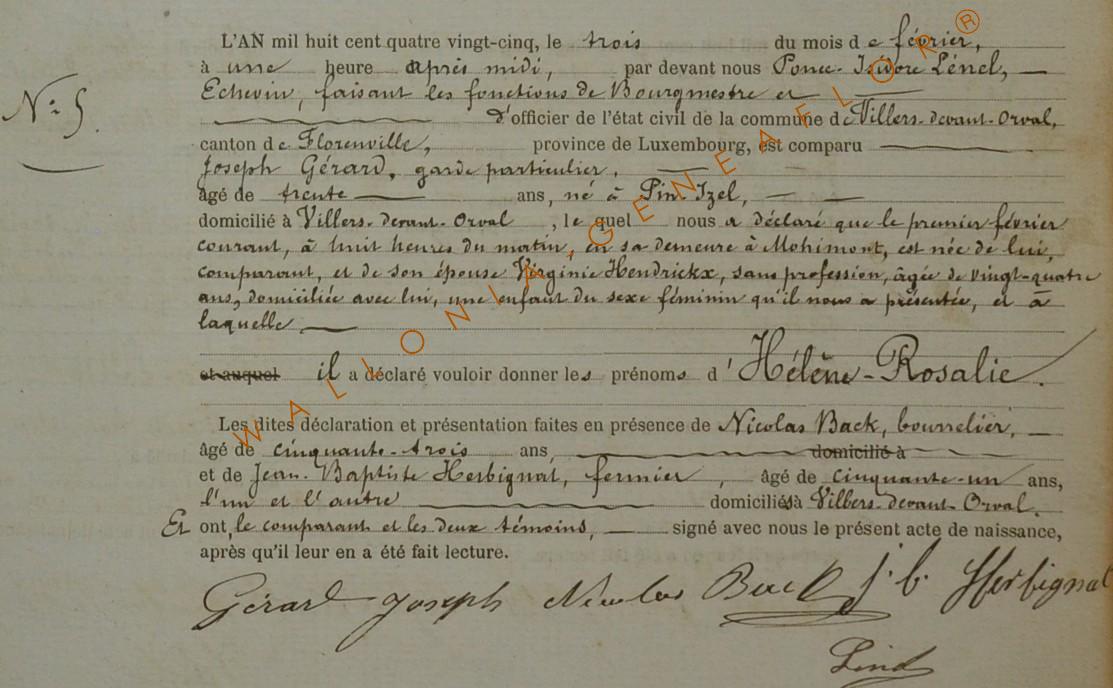 L'AN mil huit cent quatre vingt-cinq, le trois du mois de février,
à une heure après midi, par devant nous Ponce-Isidore Lénel,
Echevin, faisant les fonctions de Bourgmestre et
N° 5.
d'officier de l'état civil de la commune de Villers-devant-Orval,
canton de Florenville, province de Luxembourg, est comparu
Joseph Gérard, garde particulier,
âgé de trente ans, né à Pin-Izel,
domicilié à Villers-devant-Orval, lequel nous a déclaré que le premier février
courant, à huit heures du matin, en sa demeure à Mohimont, est née de lui,
comparant, et de son épouse Virginie Hendrickx, sans profession, âgée de vingt-quatre
ans, domiciliée avec lui, une enfant du sexe féminin qu'il nous a présentée, et à
laquelle
et auquel il a déclaré vouloir donner les prénoms d'Hélène-Rosalie.
Les dites déclaration et présentation faites en présence de Nicolas Back, bourrelier,
âgé de cinquante-trois ans, domicilié à
et de Jean-Baptiste Herbignat, fermier, âgé de cinquante-un ans,
l'un et l'autre domiciliés à Villers-devant-Orval.
Et ont, le comparant et les deux témoins, signé avec nous le présent acte de naissance,
après qu'il leur en a été fait lecture.
Gérard Joseph Nicolas Back J. b. Herbignat
WALLONIA GENEAFLOR ®